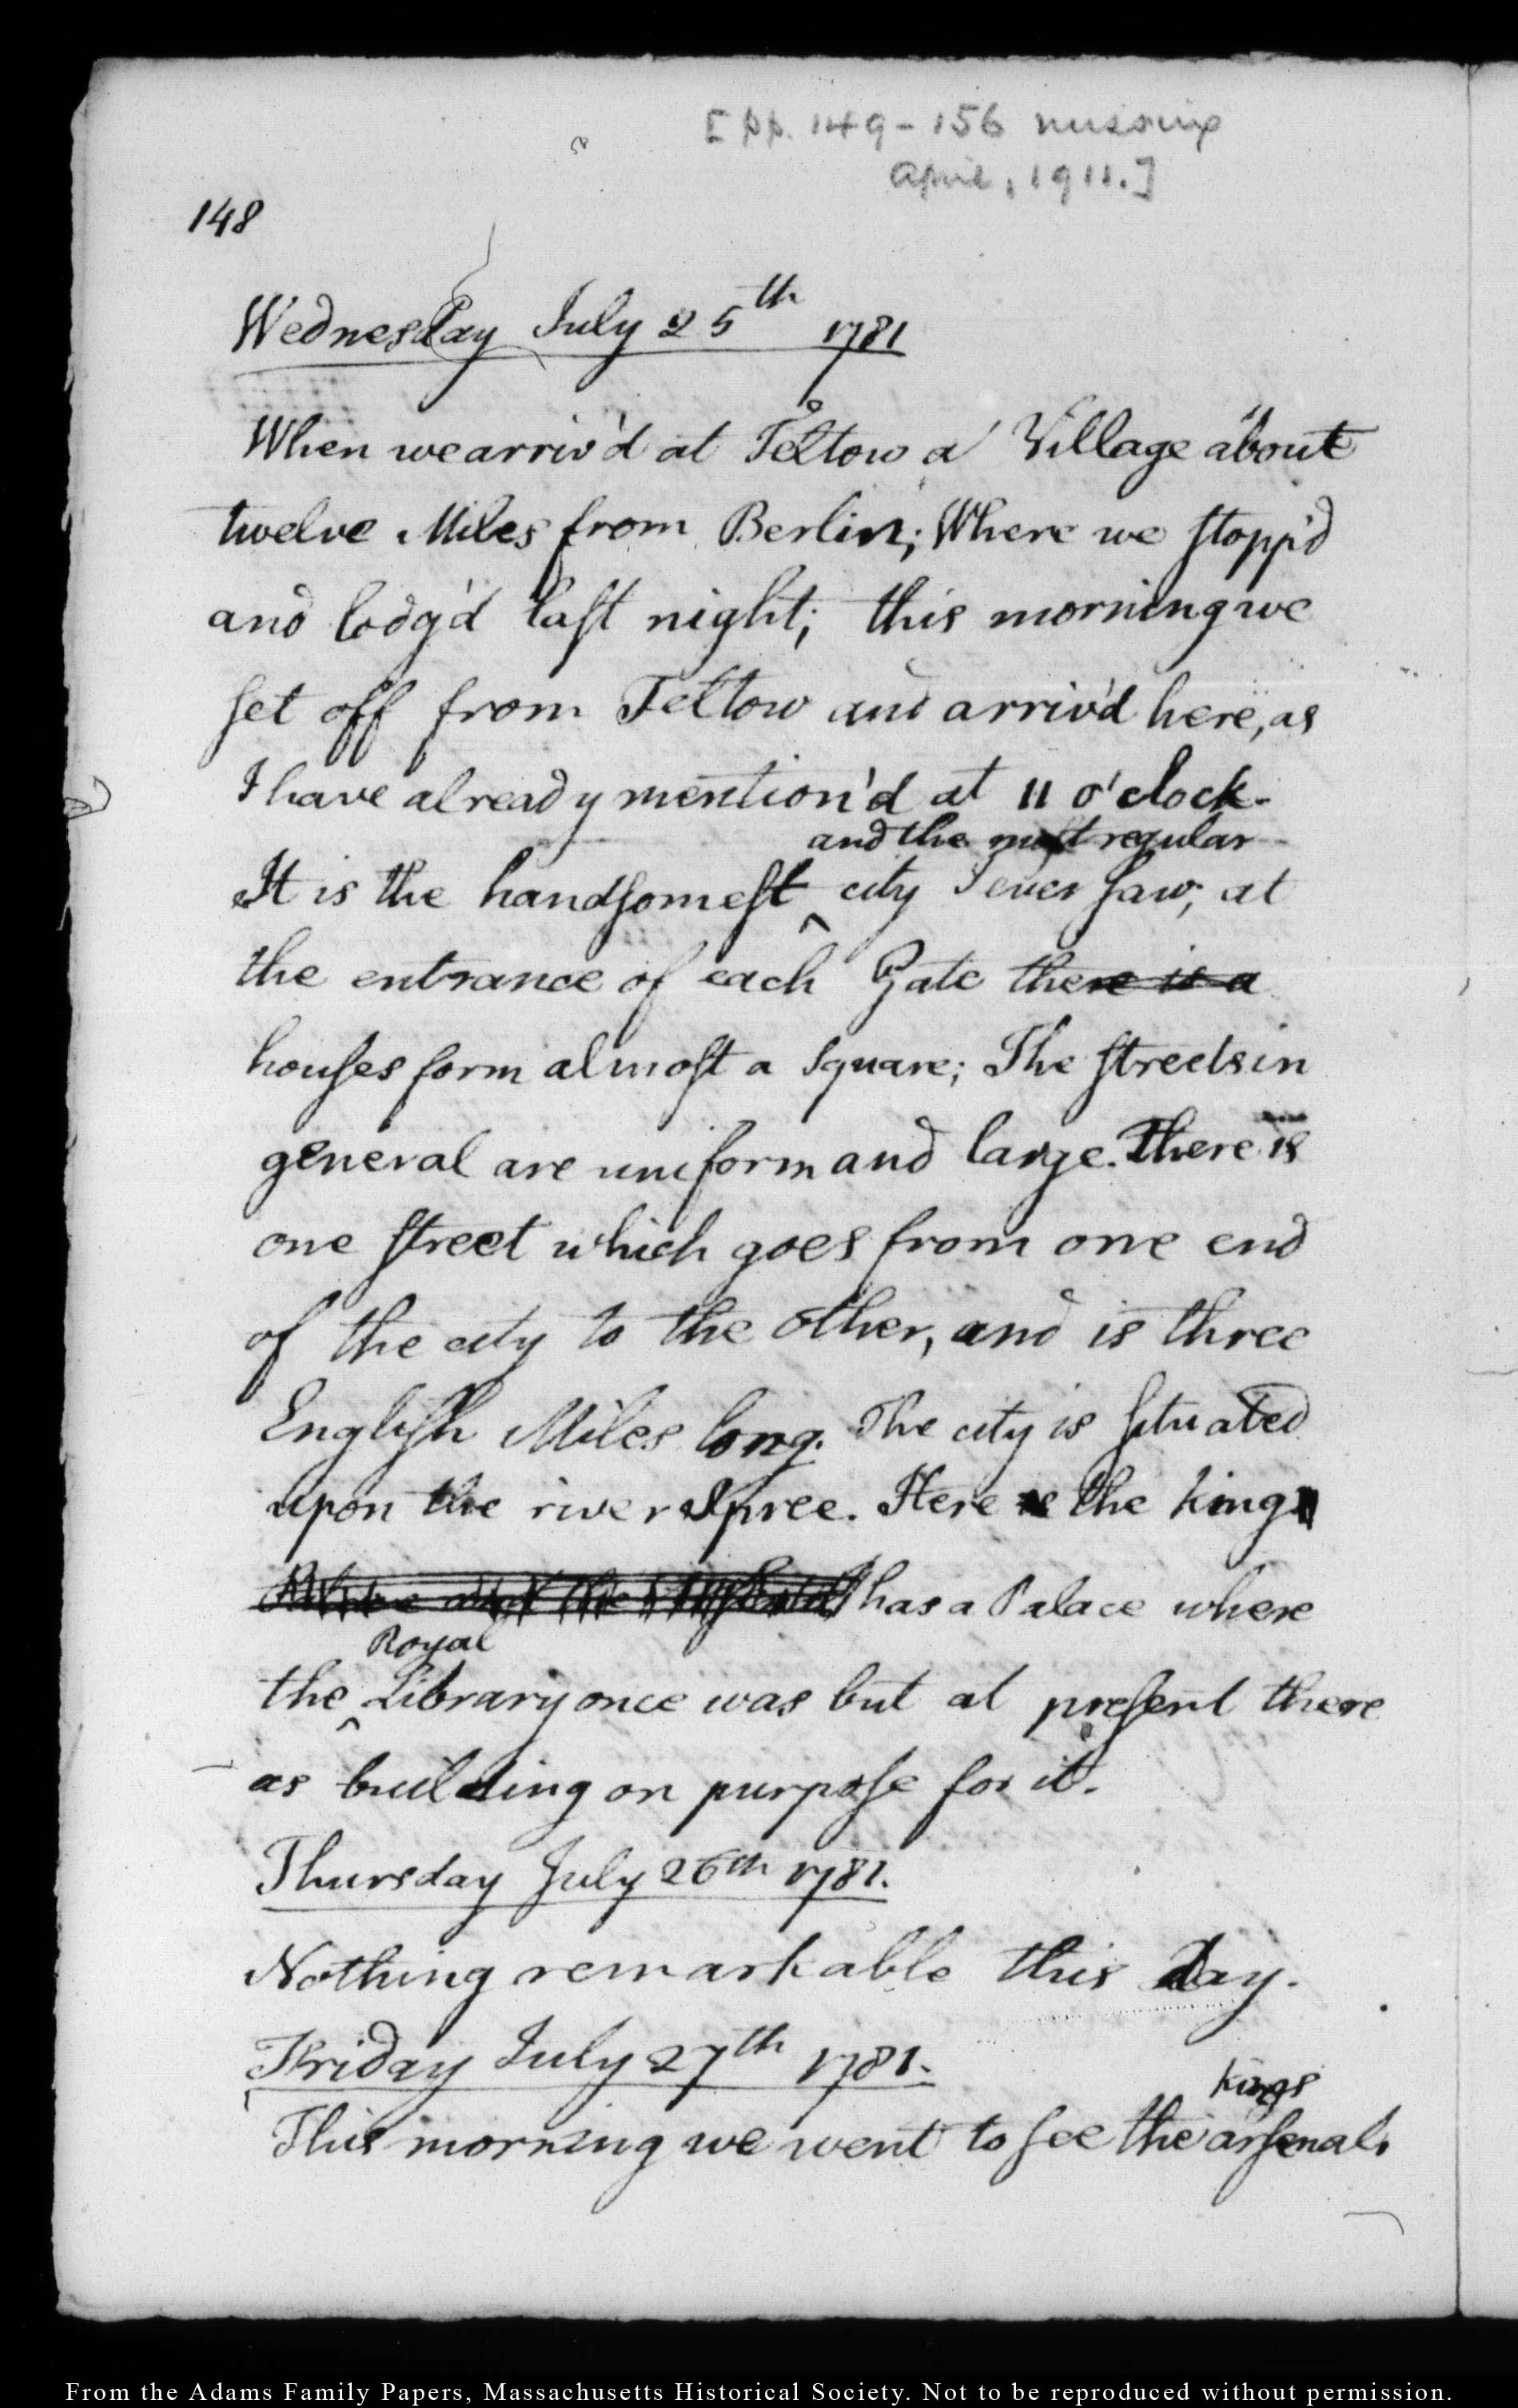 [pp. 149-156 missing
April, 1911.]
148
Wednesday July 25th 1781
When we arriv'd at Teltow a Village about
twelve Miles from Berlin; Where we stopp'd
and lodg'd last night; this morning we
set off from Teltow and arriv'd here, as
I have already mention'd at 11 o'clock.
and the most regular
It is the handsomest ^ city I ever saw; at
the entrance of each Gate there is a
houses form almost a Square; The streets in
general are uniform and large. There is
one street which goes from one end
of the city to the other, and is three
English Miles long. The city is situated
upon the river Spree. Here the king
has a Palace where
Royal
the ^ Library once was but at present there
as building on purpose for it.
Thursday July 26th 1781.
Nothing remarkable this day.
Friday July 27th 1781.
kings
This morning we went to see the arsenal.
From the Adams Family Papers, Massachusetts Historical Society. Not to be reproduced without permission.